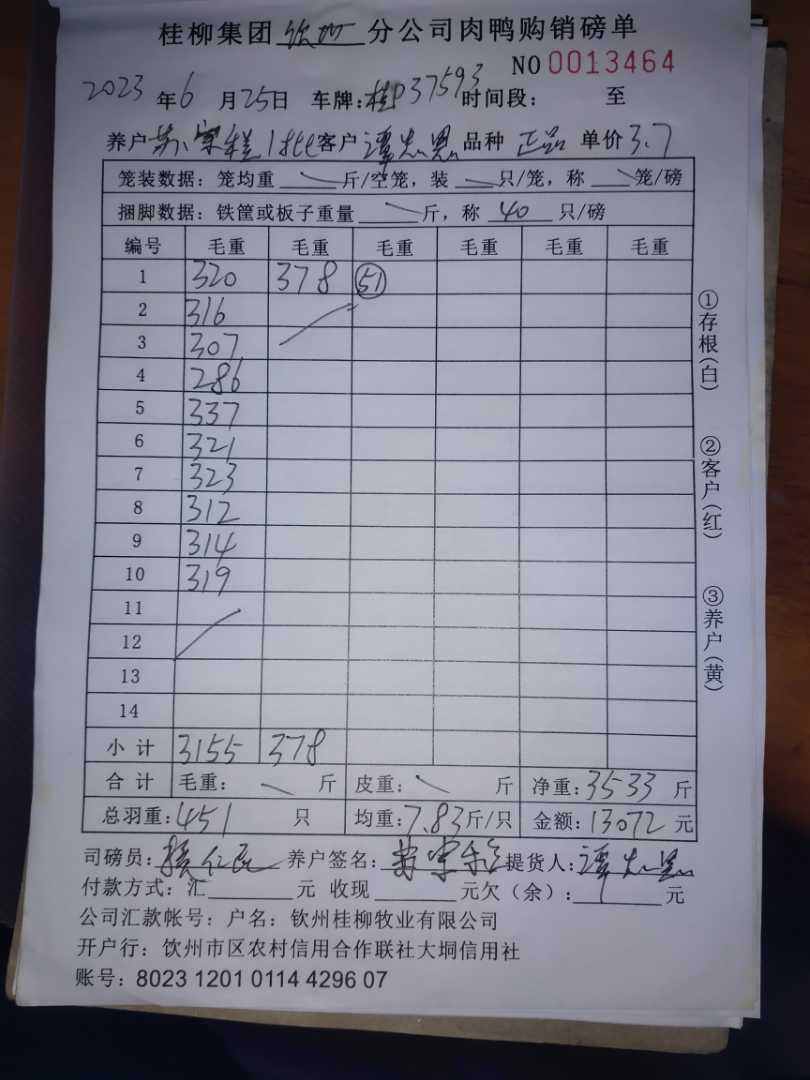 桂柳集团 钦州 分公司肉鸭购销磅单
NO 0013464
2023 年 6 月 25 日 车牌: 桂P37593 时间段: 至
养户 客户 谭忠恩 品种 正品 单价 3.7
笼装数据: 笼均重 斤/空笼, 装 只/笼, 称 笼/磅
捆脚数据: 铁筐或板子重量 斤, 称 40 只/磅
编号 毛重 毛重 毛重 毛重 毛重 毛重
1 320 378 51
2 316
3 307
4 286
5 337
6 321
7 323
8 312
9 314
10 319
11
12
13
14
小计 3155 378
合计 毛重: 斤 皮重: 斤 净重: 3533 斤
总羽重: 451 只 均重: 7.83 斤/只 金额: 13072 元
司磅员: 养户签名: 提货人: 谭忠恩
付款方式: 汇 元 收现 元欠(余): 元
公司汇款帐号: 户名: 钦州桂柳牧业有限公司
开户行: 钦州市区农村信用合作联社大垌信用社
账号: 8023 1201 0114 4296 07
①存根(白)
②客户(红)
③养户(黄)